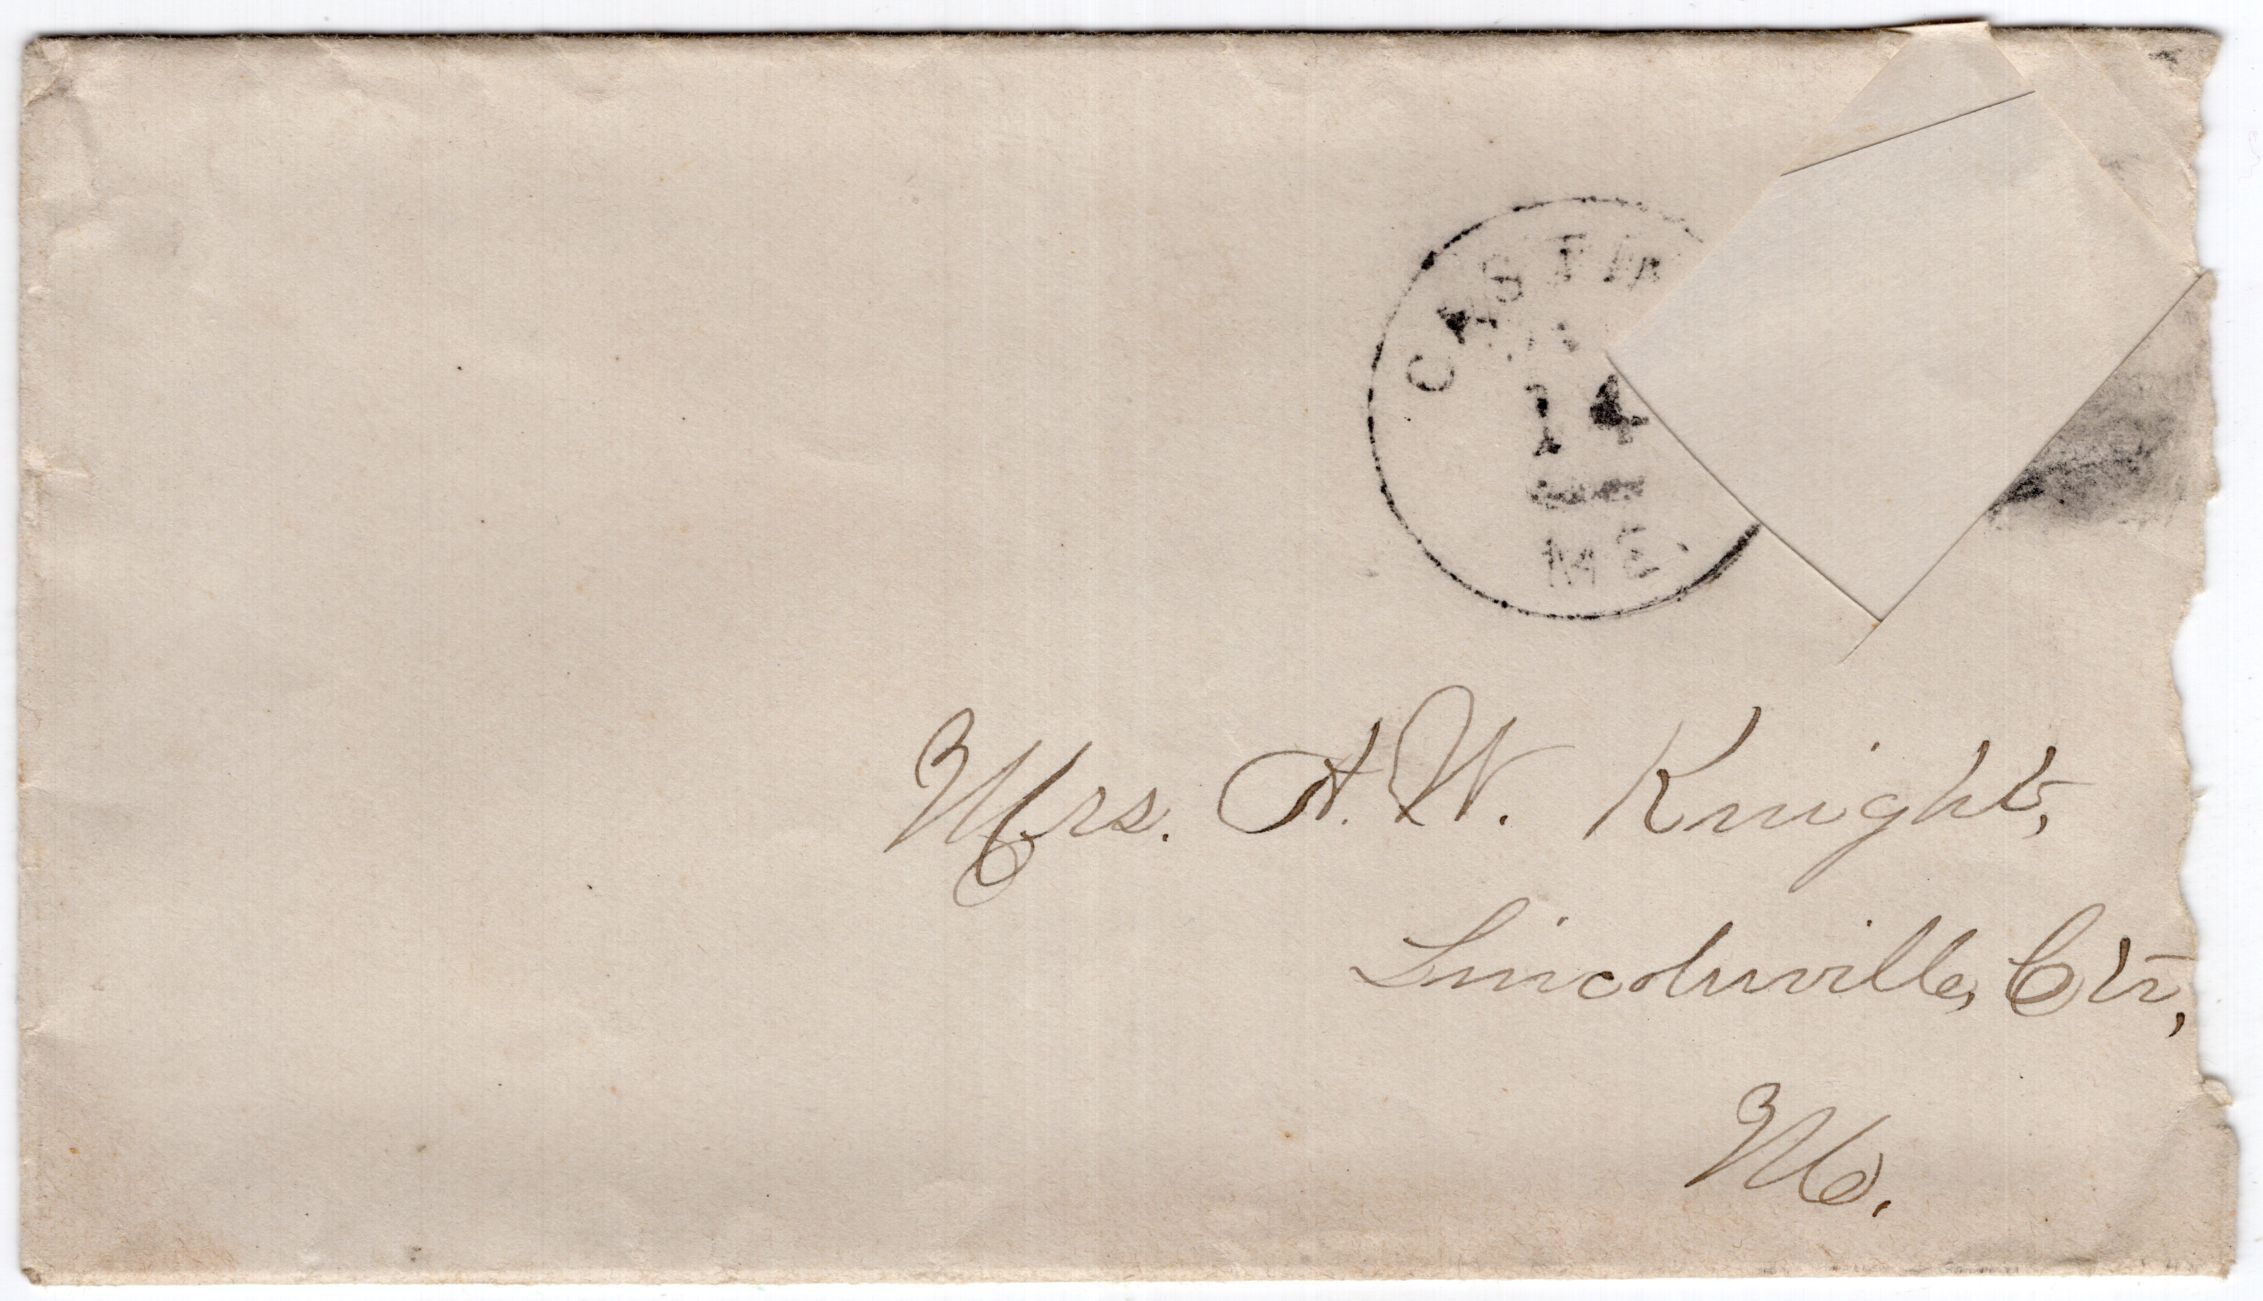 CASTIN
14
ME.
Mrs. A. W. Knight,
Lincolnville, Ctr,
Me.